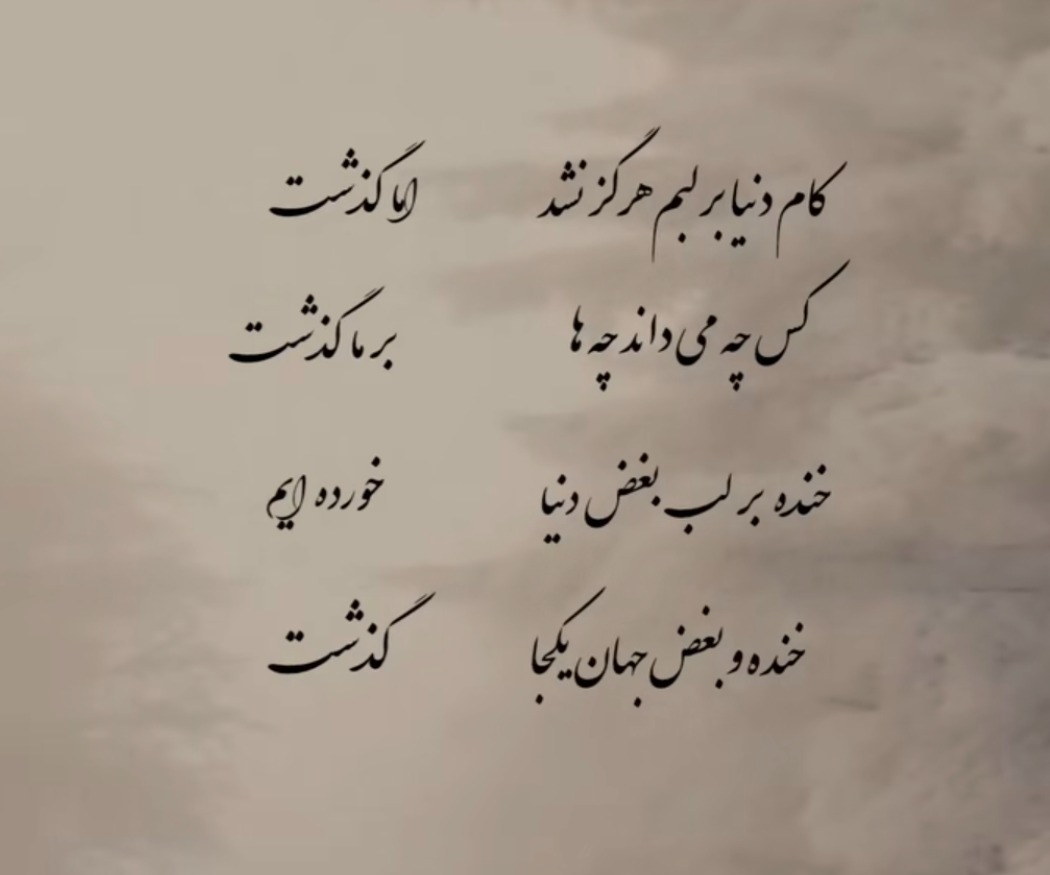 کام دنیا بر لبم هرگز نشد اما گذشت
کس چه می داند چه ها بر ما گذشت
خنده بر لب بغض دنیا خورده ایم
خنده و بغض جهان یکجا گذشت